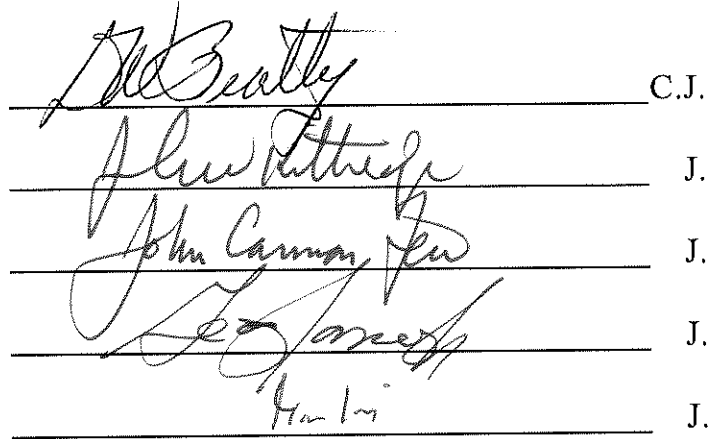 Beatty C.J.
John Kittredge J.
John Cannon Few J.
Geo James J.
J.